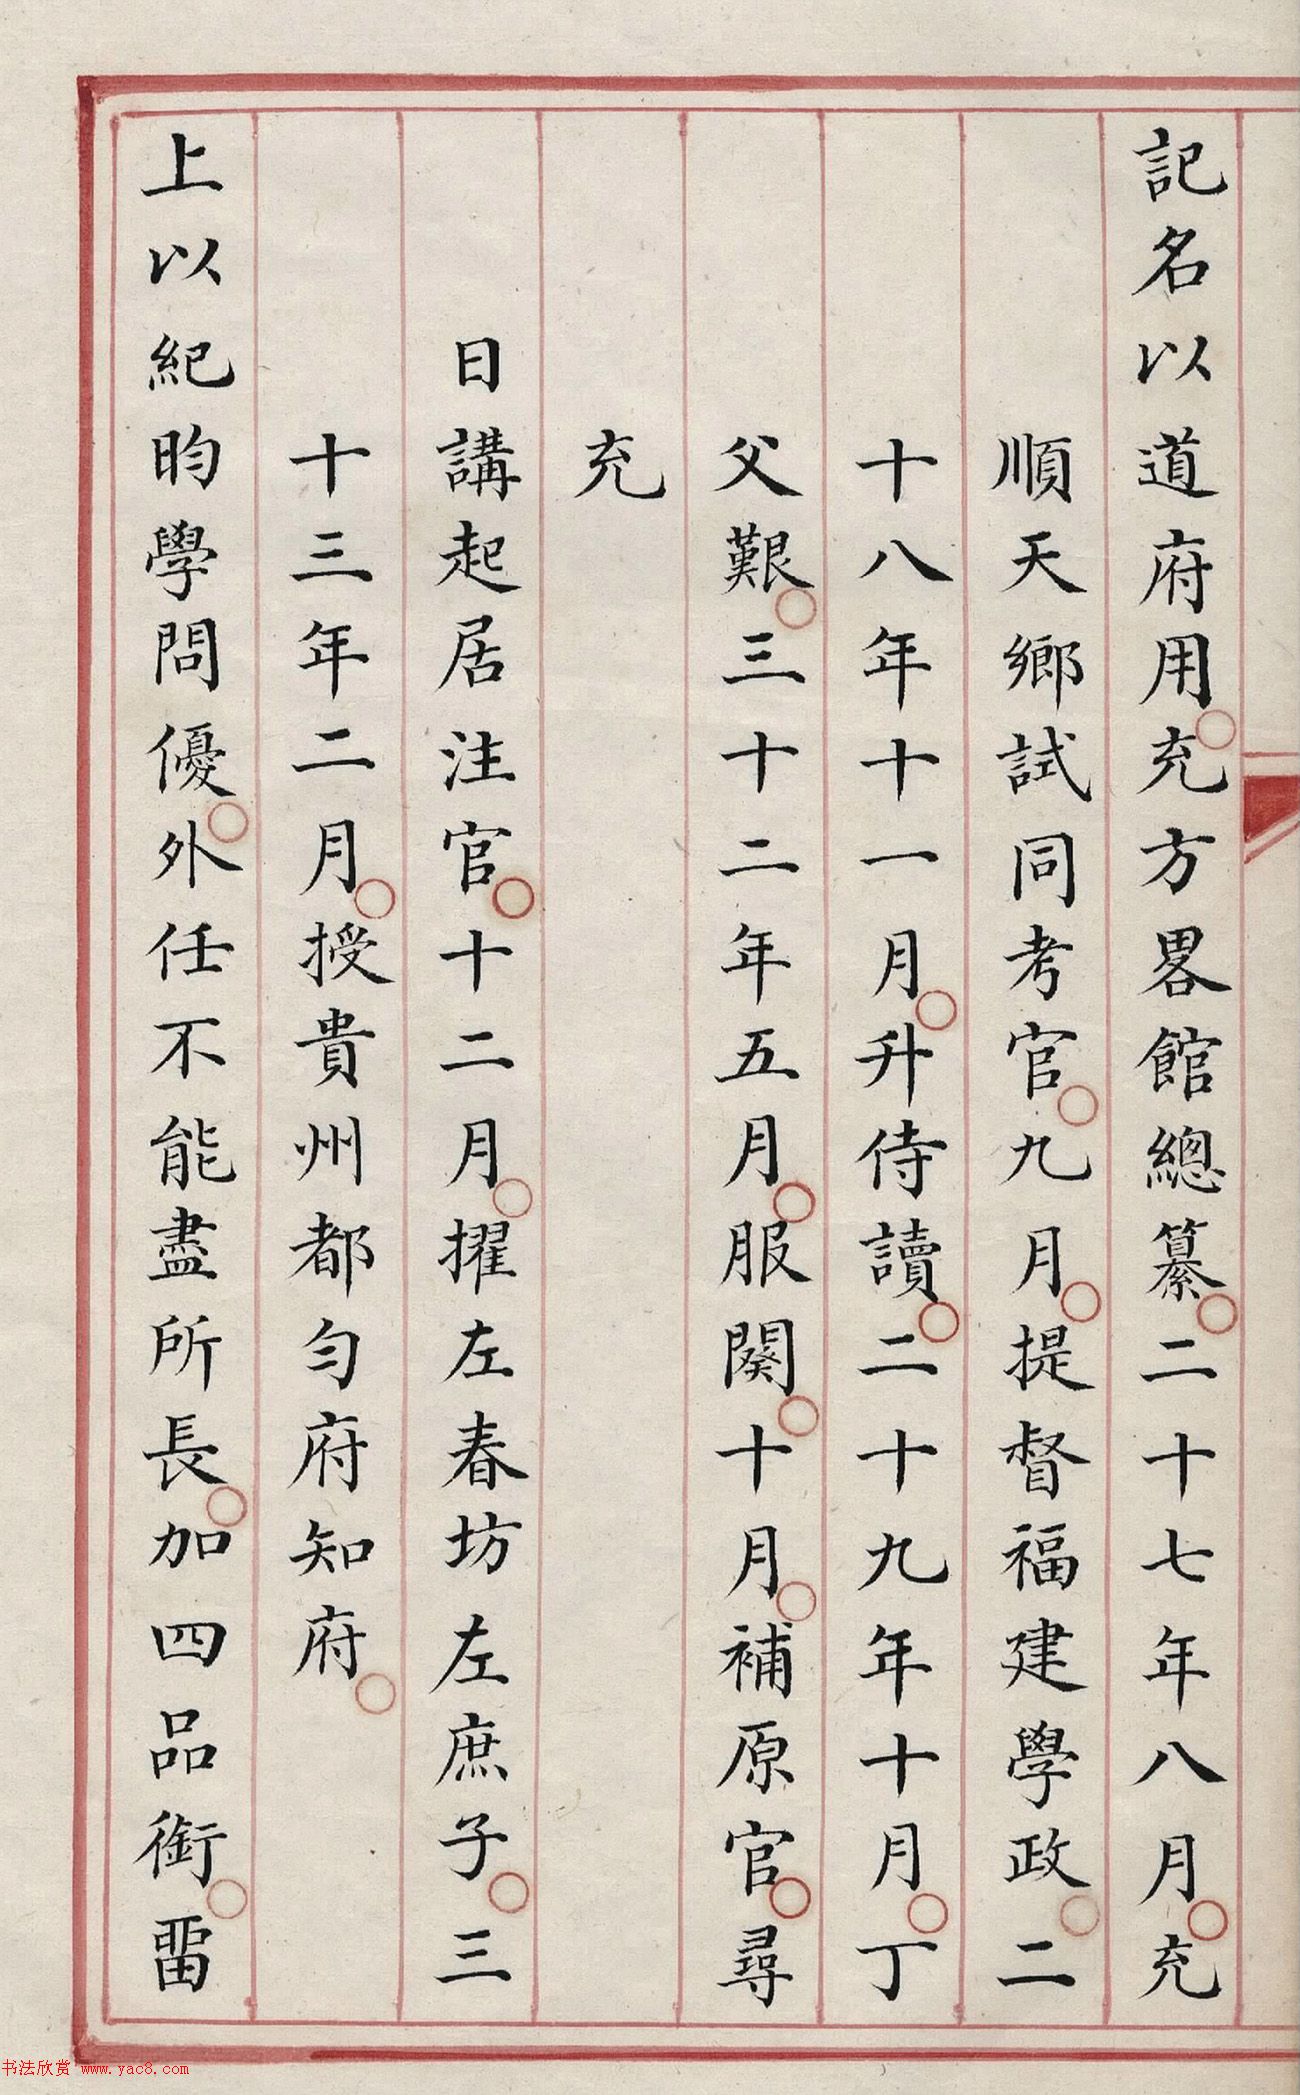 記名以道府用○充方畧館總纂○二十七年八月○充
順天鄉試同考官○九月○提督福建學政○二
十八年十一月○升侍讀○二十九年十月○丁
父艱○三十二年五月○服闋○十月○補原官○尋
充
日講起居注官○十二月○擢左春坊左庶子○三
十三年二月○授貴州都勻府知府○
上以紀昀學問優○外任不能盡所長○加四品銜○畱
书法欣赏 www.yac8.com